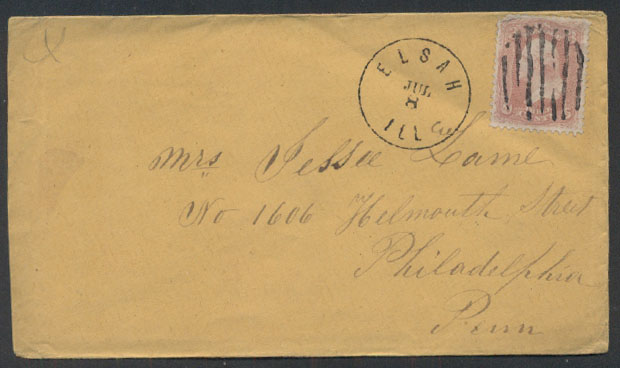 ELSAH
JUL
8
ILL
Mrs Jessie Lame
No 1606 Helmouth Street
Philadelphia
Penn